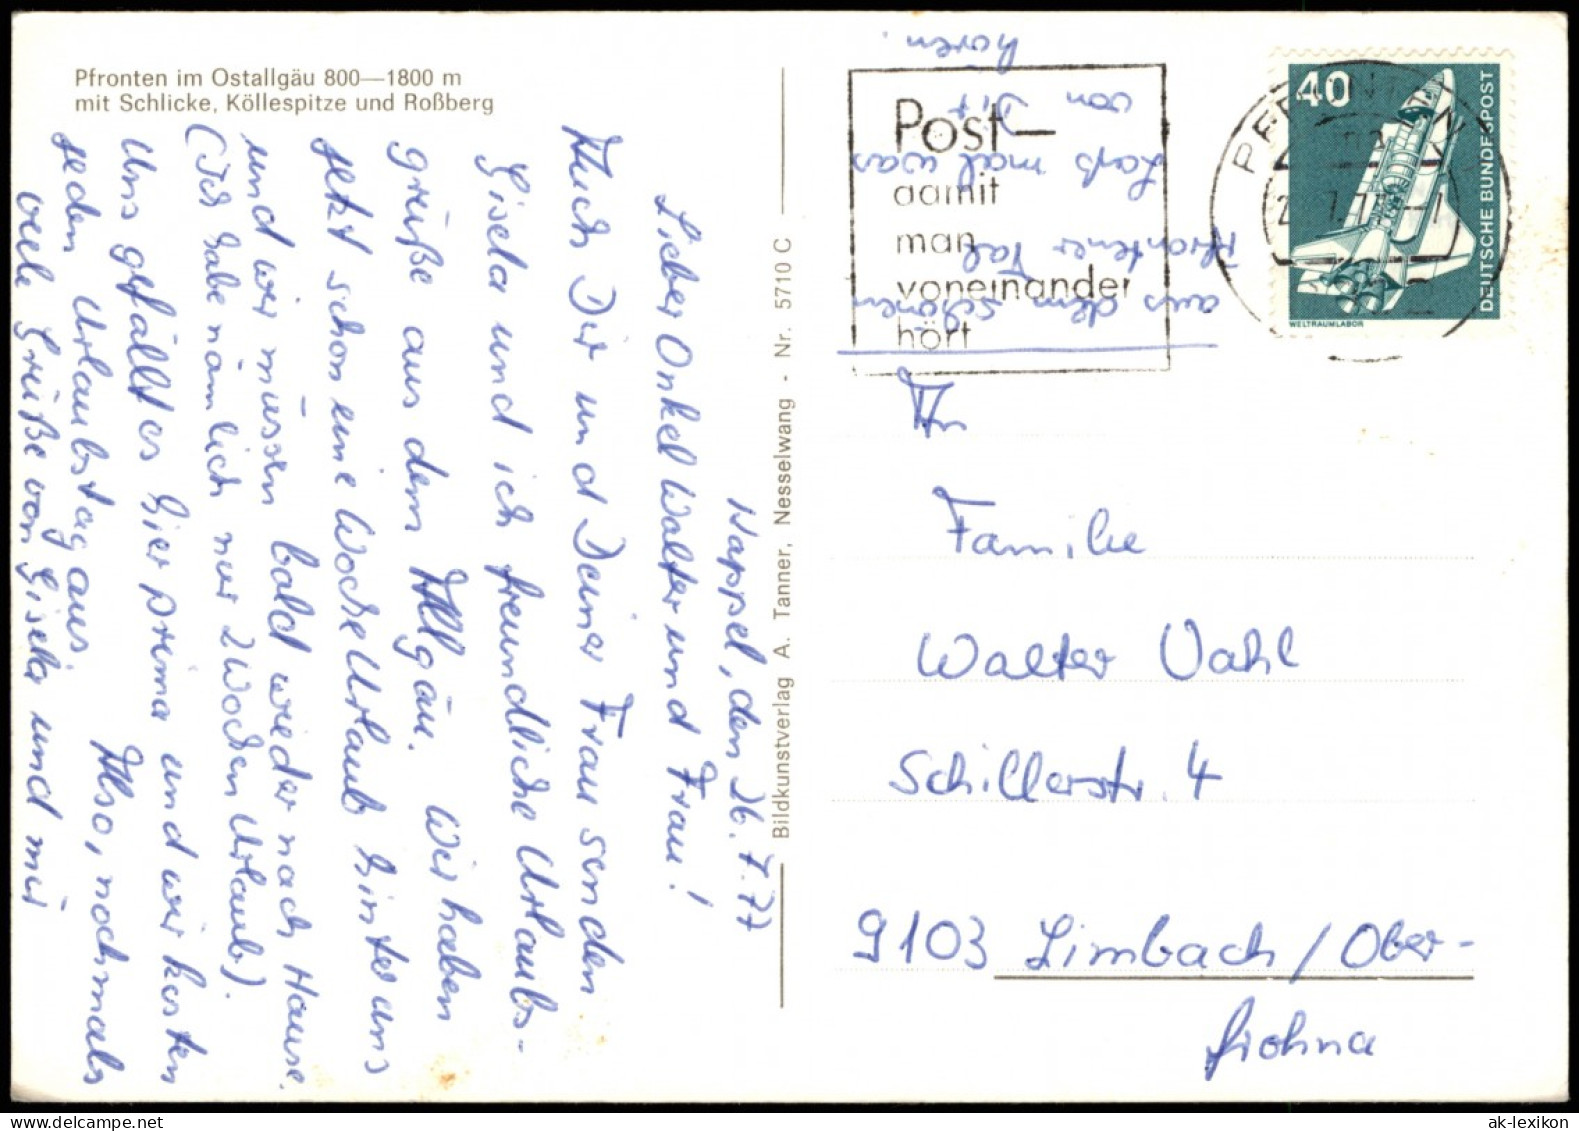 Pfronten im Ostallgäu 800—1800 m
mit Schlicke, Köllespitze und Roßberg
Nappel, den 26.7.77
Lieber Onkel Walter und Frau!
Auch Dir und Deiner Frau senden
Gisela und ich freundliche Urlaubs-
grüße aus dem Allgäu. Wir haben
jetzt schon eine Woche Urlaub hinter uns
und wir müssen bald wieder nach Hause.
(Ich habe nämlich nur 2 Wochen Urlaub).
Uns gefällt es hier prima und wir kosten
jeden Urlaubstag aus. Also, nochmals
viele Grüße von Gisela und mir
aus dem schönen
Pfrontener Tal
Laß mal was
von Dir
hören.
Bildkunstverlag A. Tanner, Nesselwang - Nr. 5710 C
Post—
damit
man
voneinander
hört
PFRONTEN
40
DEUTSCHE BUNDESPOST
WELTRAUMLABOR
An
Familie
Walter Vahl
Schillerstr. 4
9103 Limbach/Ober-
frohna
ak-lexikon